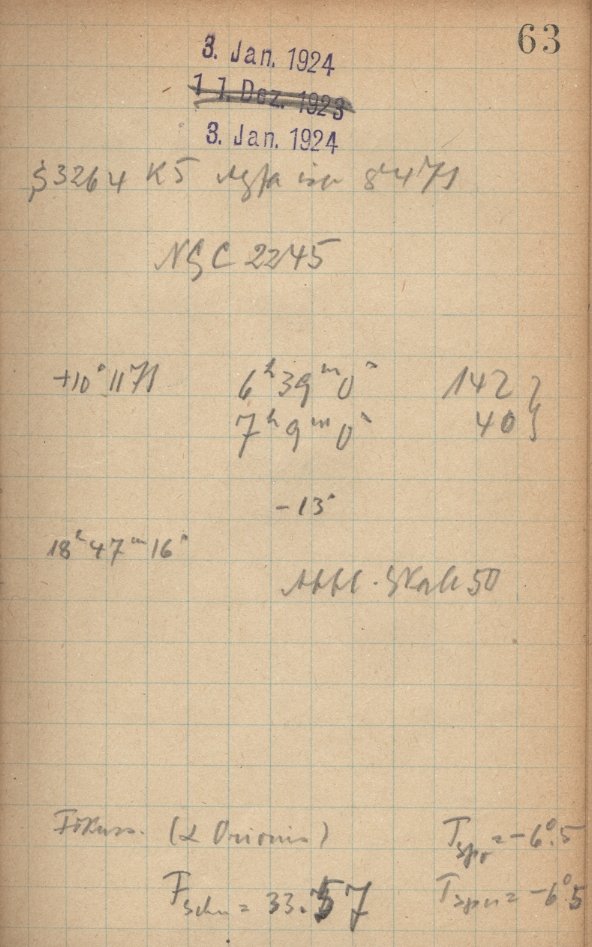 63
3. Jan. 1924
11. Dez. 1923
3. Jan. 1924
S3264 K5 8ʰ47
NGC 2245
+10°11 6ʰ39ᵐ0ˢ 142 }
7ʰ9ᵐ0ˢ 40 }
-13°
18ʰ47ᵐ16ˢ
Skala 50
Fokuss. (α Orionis) T = -6°.5
F = 33.57 T = -6°5